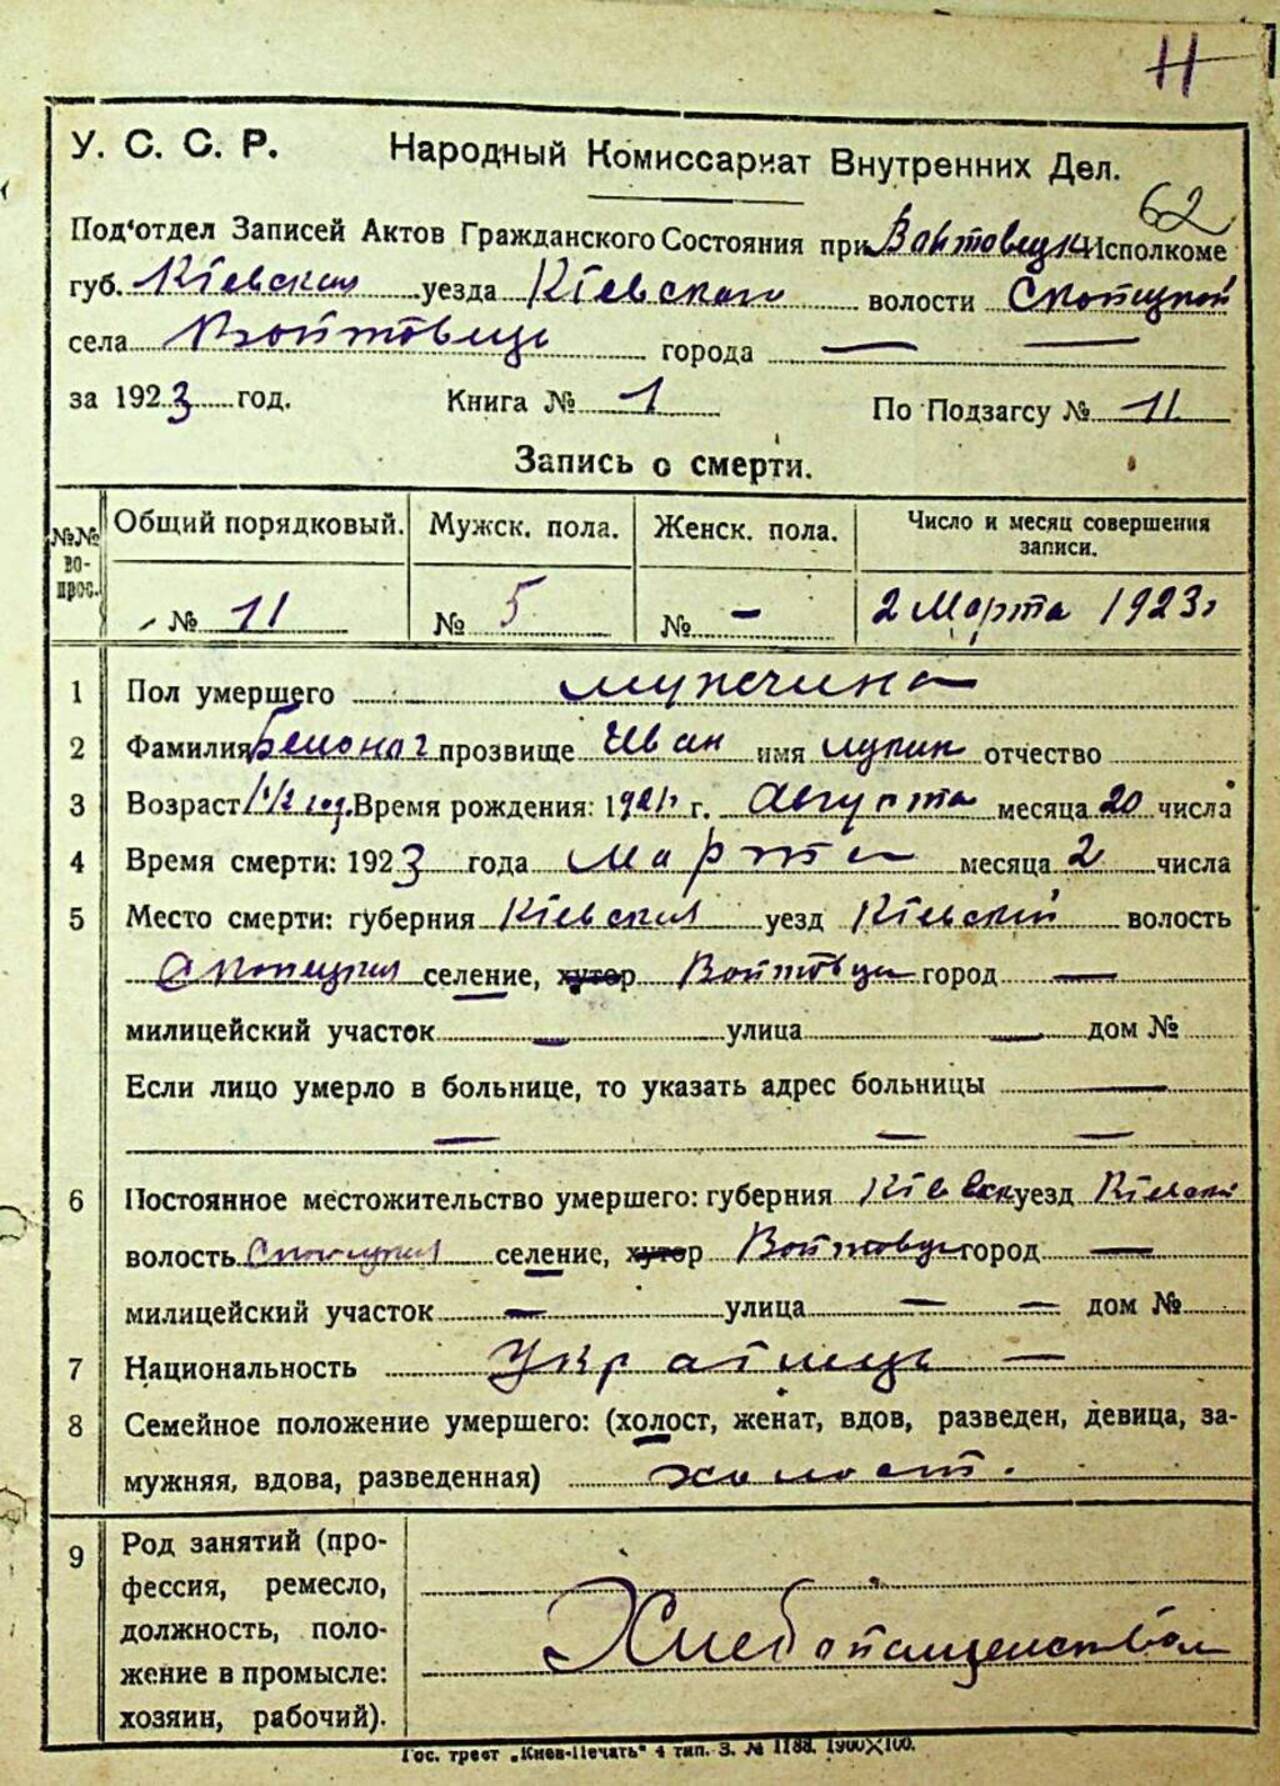 11
У. С. С. Р. Народный Комиссариат Внутренних Дел.
62
Под'отдел Записей Актов Гражданского Состояния при Войтовецк Исполкоме
губ. Кіевская уезда Кіевского волости Скопецкой
села Войтовець города — —
за 1923 год. Книга № 1 По Подзагсу № 11
Запись о смерти.
№№ вопрос. Общий порядковый. Мужск. пола. Женск. пола. Число и месяц совершения записи.
№ 11 № 5 № — 2 Марта 1923г
1 Пол умершего мужчина
2 Фамилия прозвище Иван имя отчество
3 Возраст 1 1/2 год. Время рождения: 1921 г. Августа месяца 20 числа
4 Время смерти: 1923 года марта месяца 2 числа
5 Место смерти: губерния Кіевская уезд Кіевский волость
Скопецкая селение, хутор Войтовци город —
милицейский участок — улица — дом №
Если лицо умерло в больнице, то указать адрес больницы —
— — —
6 Постоянное местожительство умершего: губерния Кіевск уезд Кіевски
волость Скопецкая селение, хутор Войтовци город —
милицейский участок — улица — — дом №
7 Национальность Українець —
8 Семейное положение умершего: (холост, женат, вдов, разведен, девица, за-
мужняя, вдова, разведенная) холост.
9 Род занятий (про-
фессия, ремесло,
должность, поло-
жение в промысле:
хозяин, рабочий).
Хлебопашенством
Гос. трест „Киев-Печать" 4 тип. З. № 1188. 1900×100.